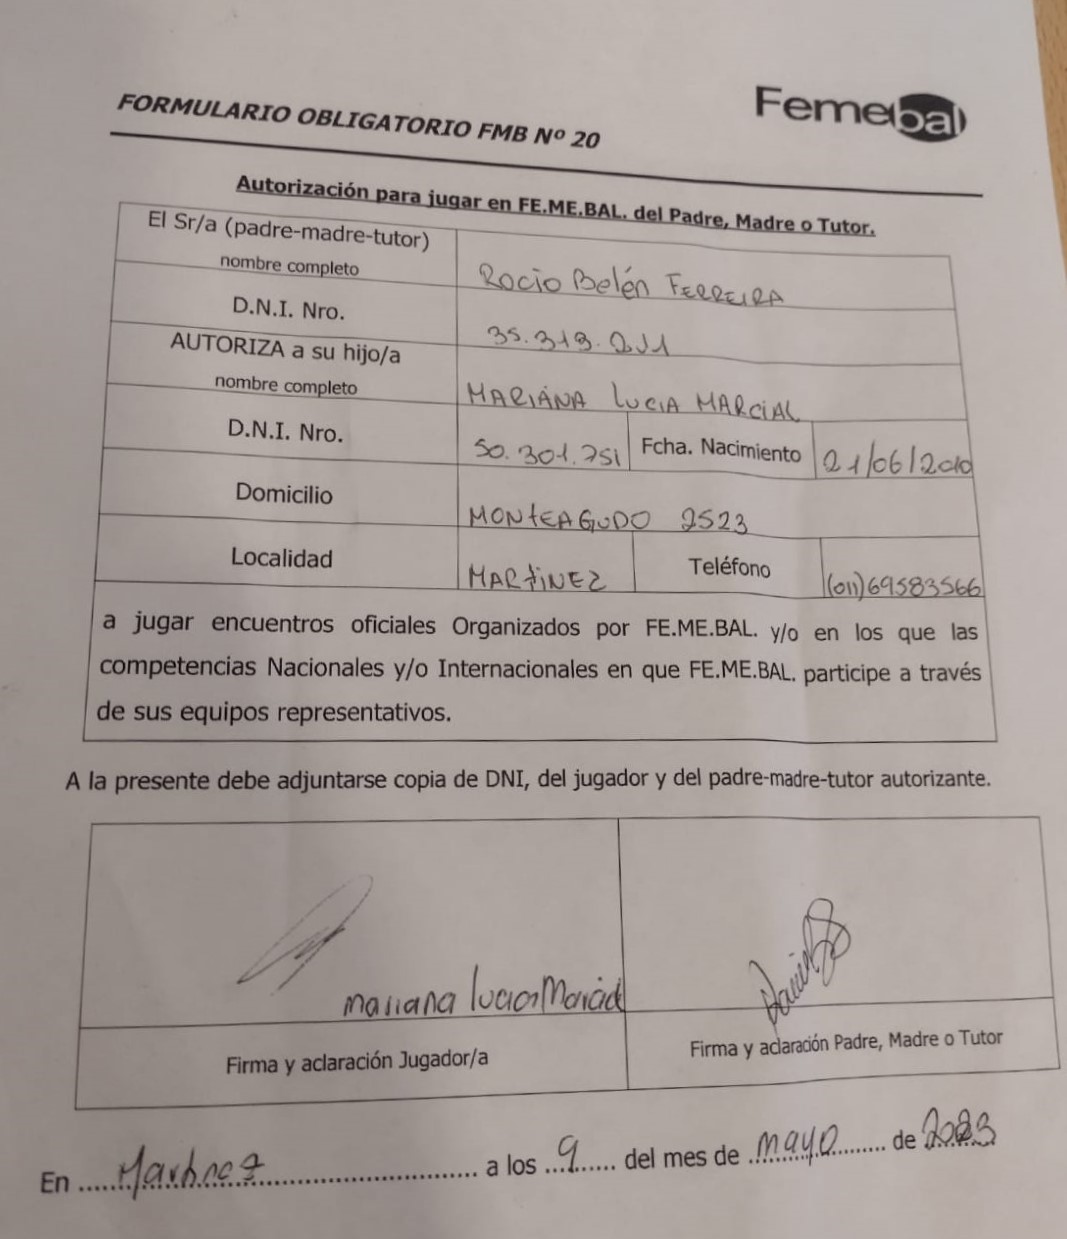 FORMULARIO OBLIGATORIO FMB Nº 20
Femebal
Autorización para jugar en FE.ME.BAL. del Padre, Madre o Tutor.
El Sr/a (padre-madre-tutor)
nombre completo
Rocio Belén FERREIRA
D.N.I. Nro.
35.319.211
AUTORIZA a su hijo/a
nombre completo
MARIANA LUCIA MARCIAL
D.N.I. Nro.
50.301.751
Fcha. Nacimiento
21/06/2010
Domicilio
MONTEAGUDO 2523
Localidad
MARTINEZ
Teléfono
(011)69583566
a jugar encuentros oficiales Organizados por FE.ME.BAL. y/o en los que las
competencias Nacionales y/o Internacionales en que FE.ME.BAL. participe a través
de sus equipos representativos.
A la presente debe adjuntarse copia de DNI, del jugador y del padre-madre-tutor autorizante.
mariana lucia Marcial
Firma y aclaración Jugador/a
Firma y aclaración Padre, Madre o Tutor
En Martinez a los 9 del mes de mayo de 2023